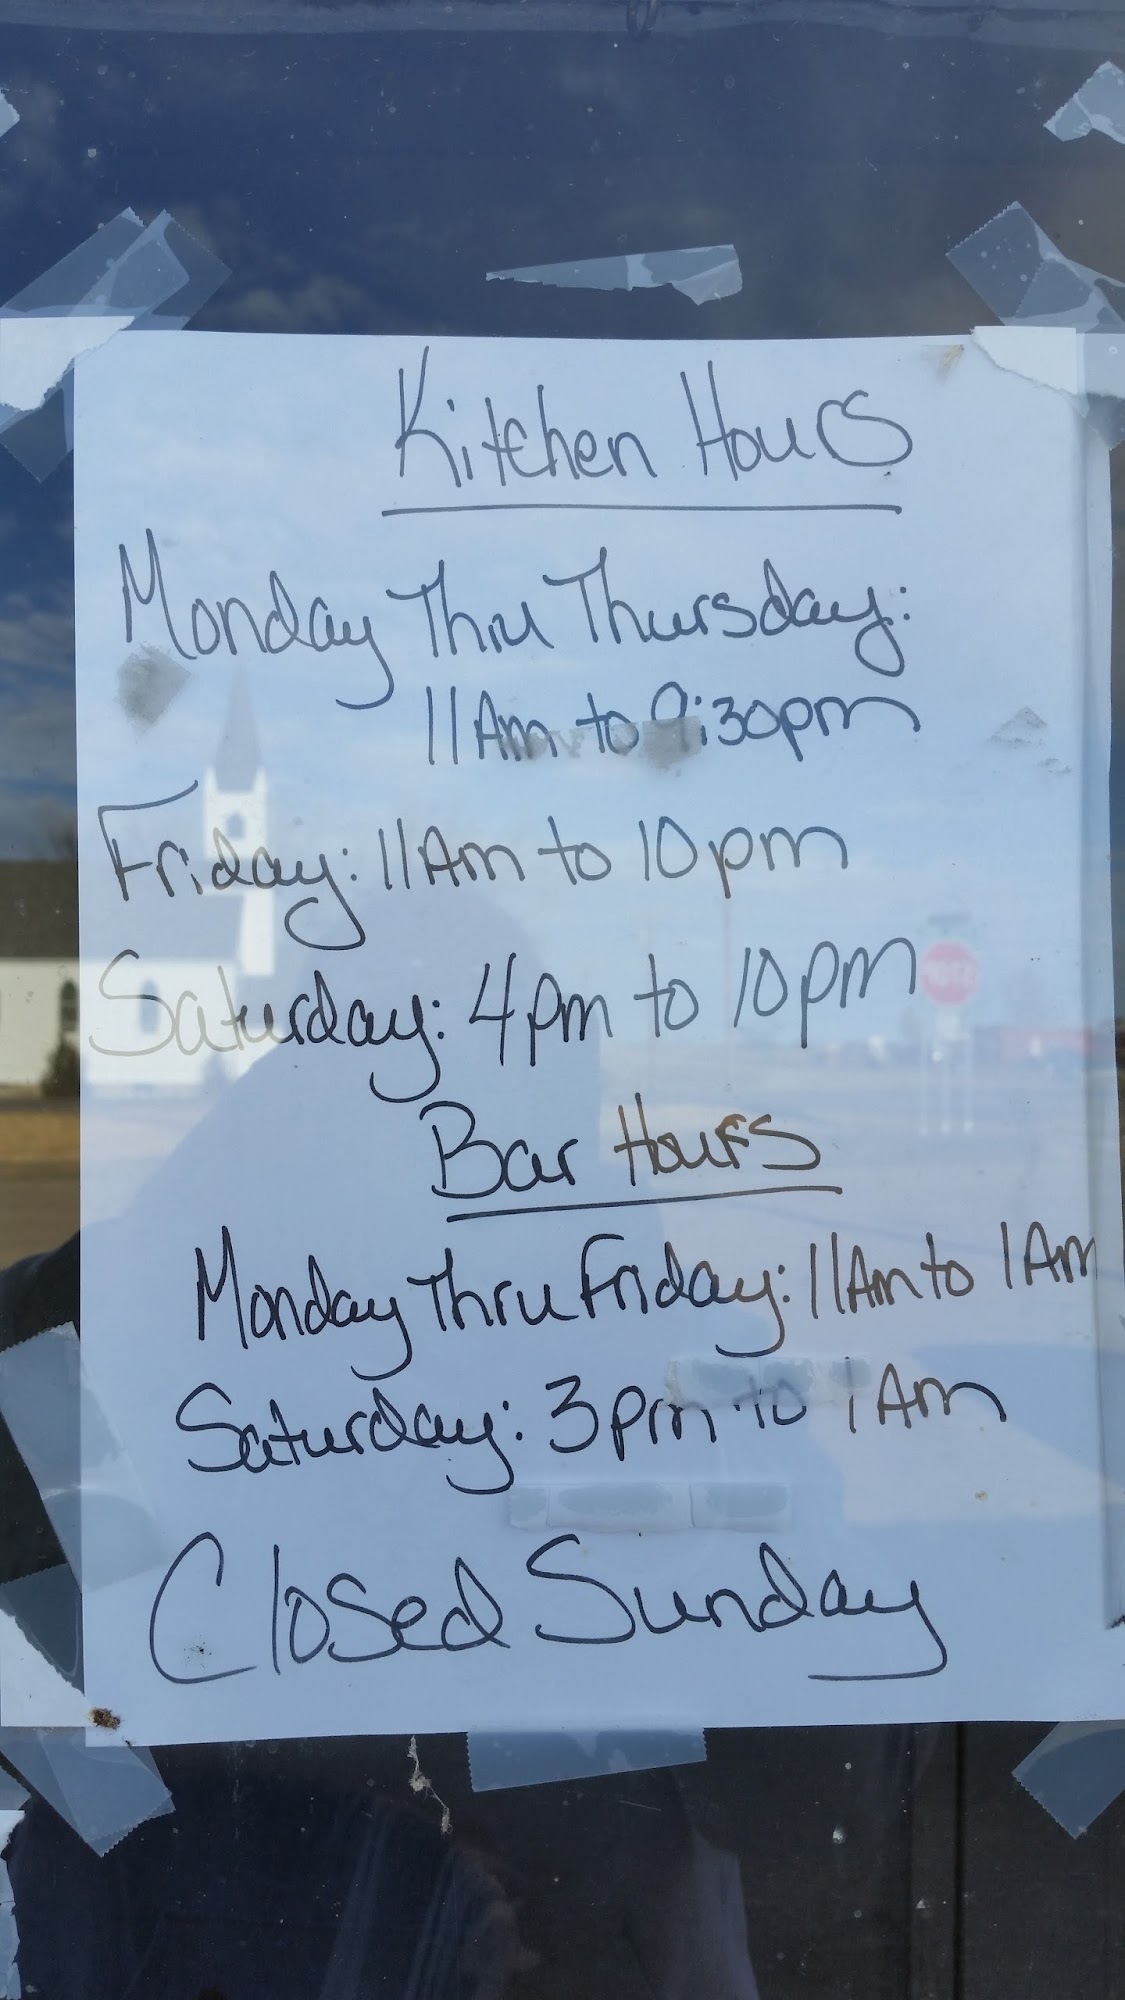 Kitchen Hours
Monday Thru Thursday:
11Am to 9:30pm
Friday: 11Am to 10pm
Saturday: 4pm to 10pm
Bar Hours
Monday Thru Friday: 11Am to 1Am
Saturday: 3pm to 1Am
Closed Sunday